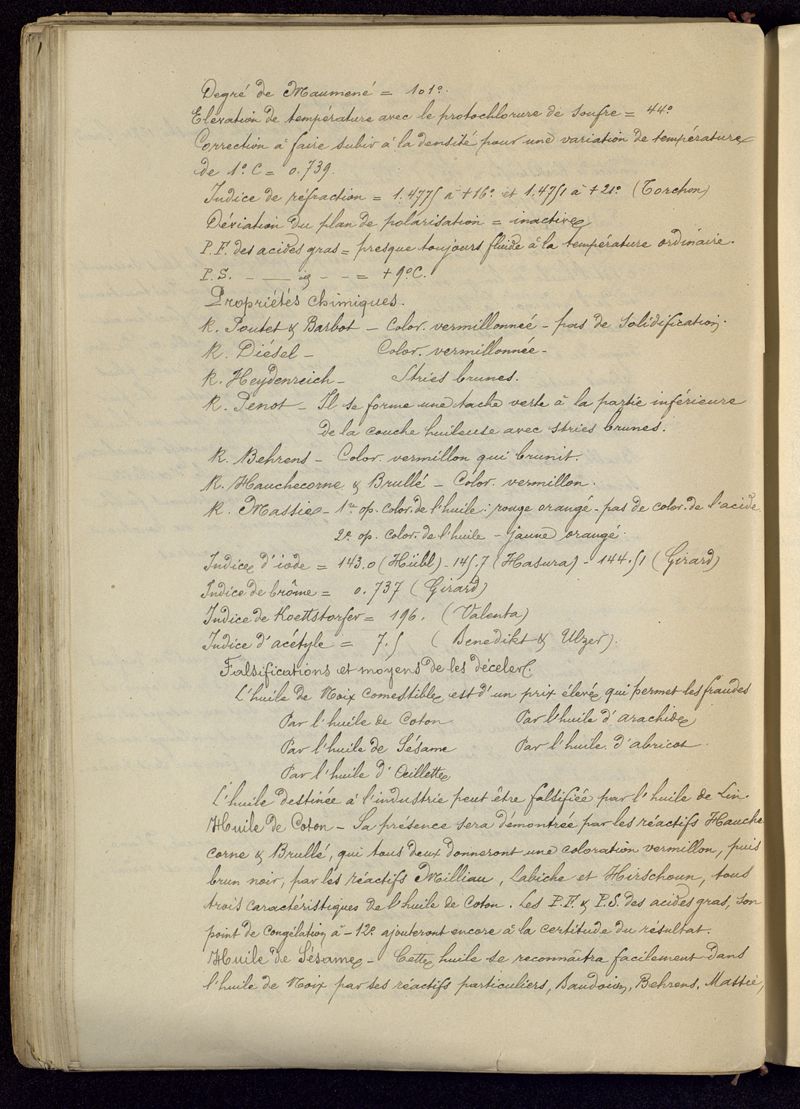 Degré de Maumené = 101°.
Elévation de température avec le protochlorure de soufre = 44°
Correction à faire subir à la densité pour une variation de température
de 1° C = 0.739.
Indice de réfraction = 1.4775 à +16° et 1.4751 à +21° (Torchon)
Déviation du plan de polarisation = inactive
P.F. des acides gras = presque toujours fluide à la température ordinaire.
P.S. - — & - - = + 9° C.
Propriétés chimiques.
R. Poutet & Barbot - Color. vermillonnée - pas de solidification.
R. Diésel - Color. vermillonnée -
R. Heydenreich - Stries brunes.
R. Penot - Il se forme une tache verte à la partie inférieure
de la couche huileuse avec stries brunes.
R. Behrens - Color. vermillon qui brunit.
R. Hauchecorne & Brullé - Color. vermillon.
R. Massie - 1re op. color. de l'huile : rouge orangé - pas de color. de l'acide
2e op. color. de l'huile - jaune orangé.
Indice d'iode = 143.0 (Hübl) - 145.7 (Hasura) - 144.51 (Girard)
Indice de brôme = 0.737 (Girard)
Indice de Koettstorfer = 196. (Valenta)
Indice d'acétyle = 7.5 (Benedikt & Ulzer).
Falsifications et moyens de les déceler.
L'huile de Noix comestible est d'un prix élevé qui permet les fraudes
Par l'huile de Coton Par l'huile d'arachide
Par l'huile de Sésame Par l'huile d'abricot.
Par l'huile d'Oeillette
L'huile destinée à l'industrie peut être falsifiée par l'huile de Lin.
Huile de Coton - Sa présence sera démontrée par les réactifs Hauche
corne & Brullé, qui tous deux donneront une coloration vermillon, puis
brun noir, par les réactifs Milliau, Labiche et Hirschoun, tous
trois caractéristiques de l'huile de Coton. Les P.F. & P.S. des acides gras, son
point de Congélation à -12° ajouteront encore à la certitude du résultat.
Huile de Sésame - Cette huile se reconnaîtra facilement dans
l'huile de Noix par ses réactifs particuliers, Baudoin, Behrens, Massie,